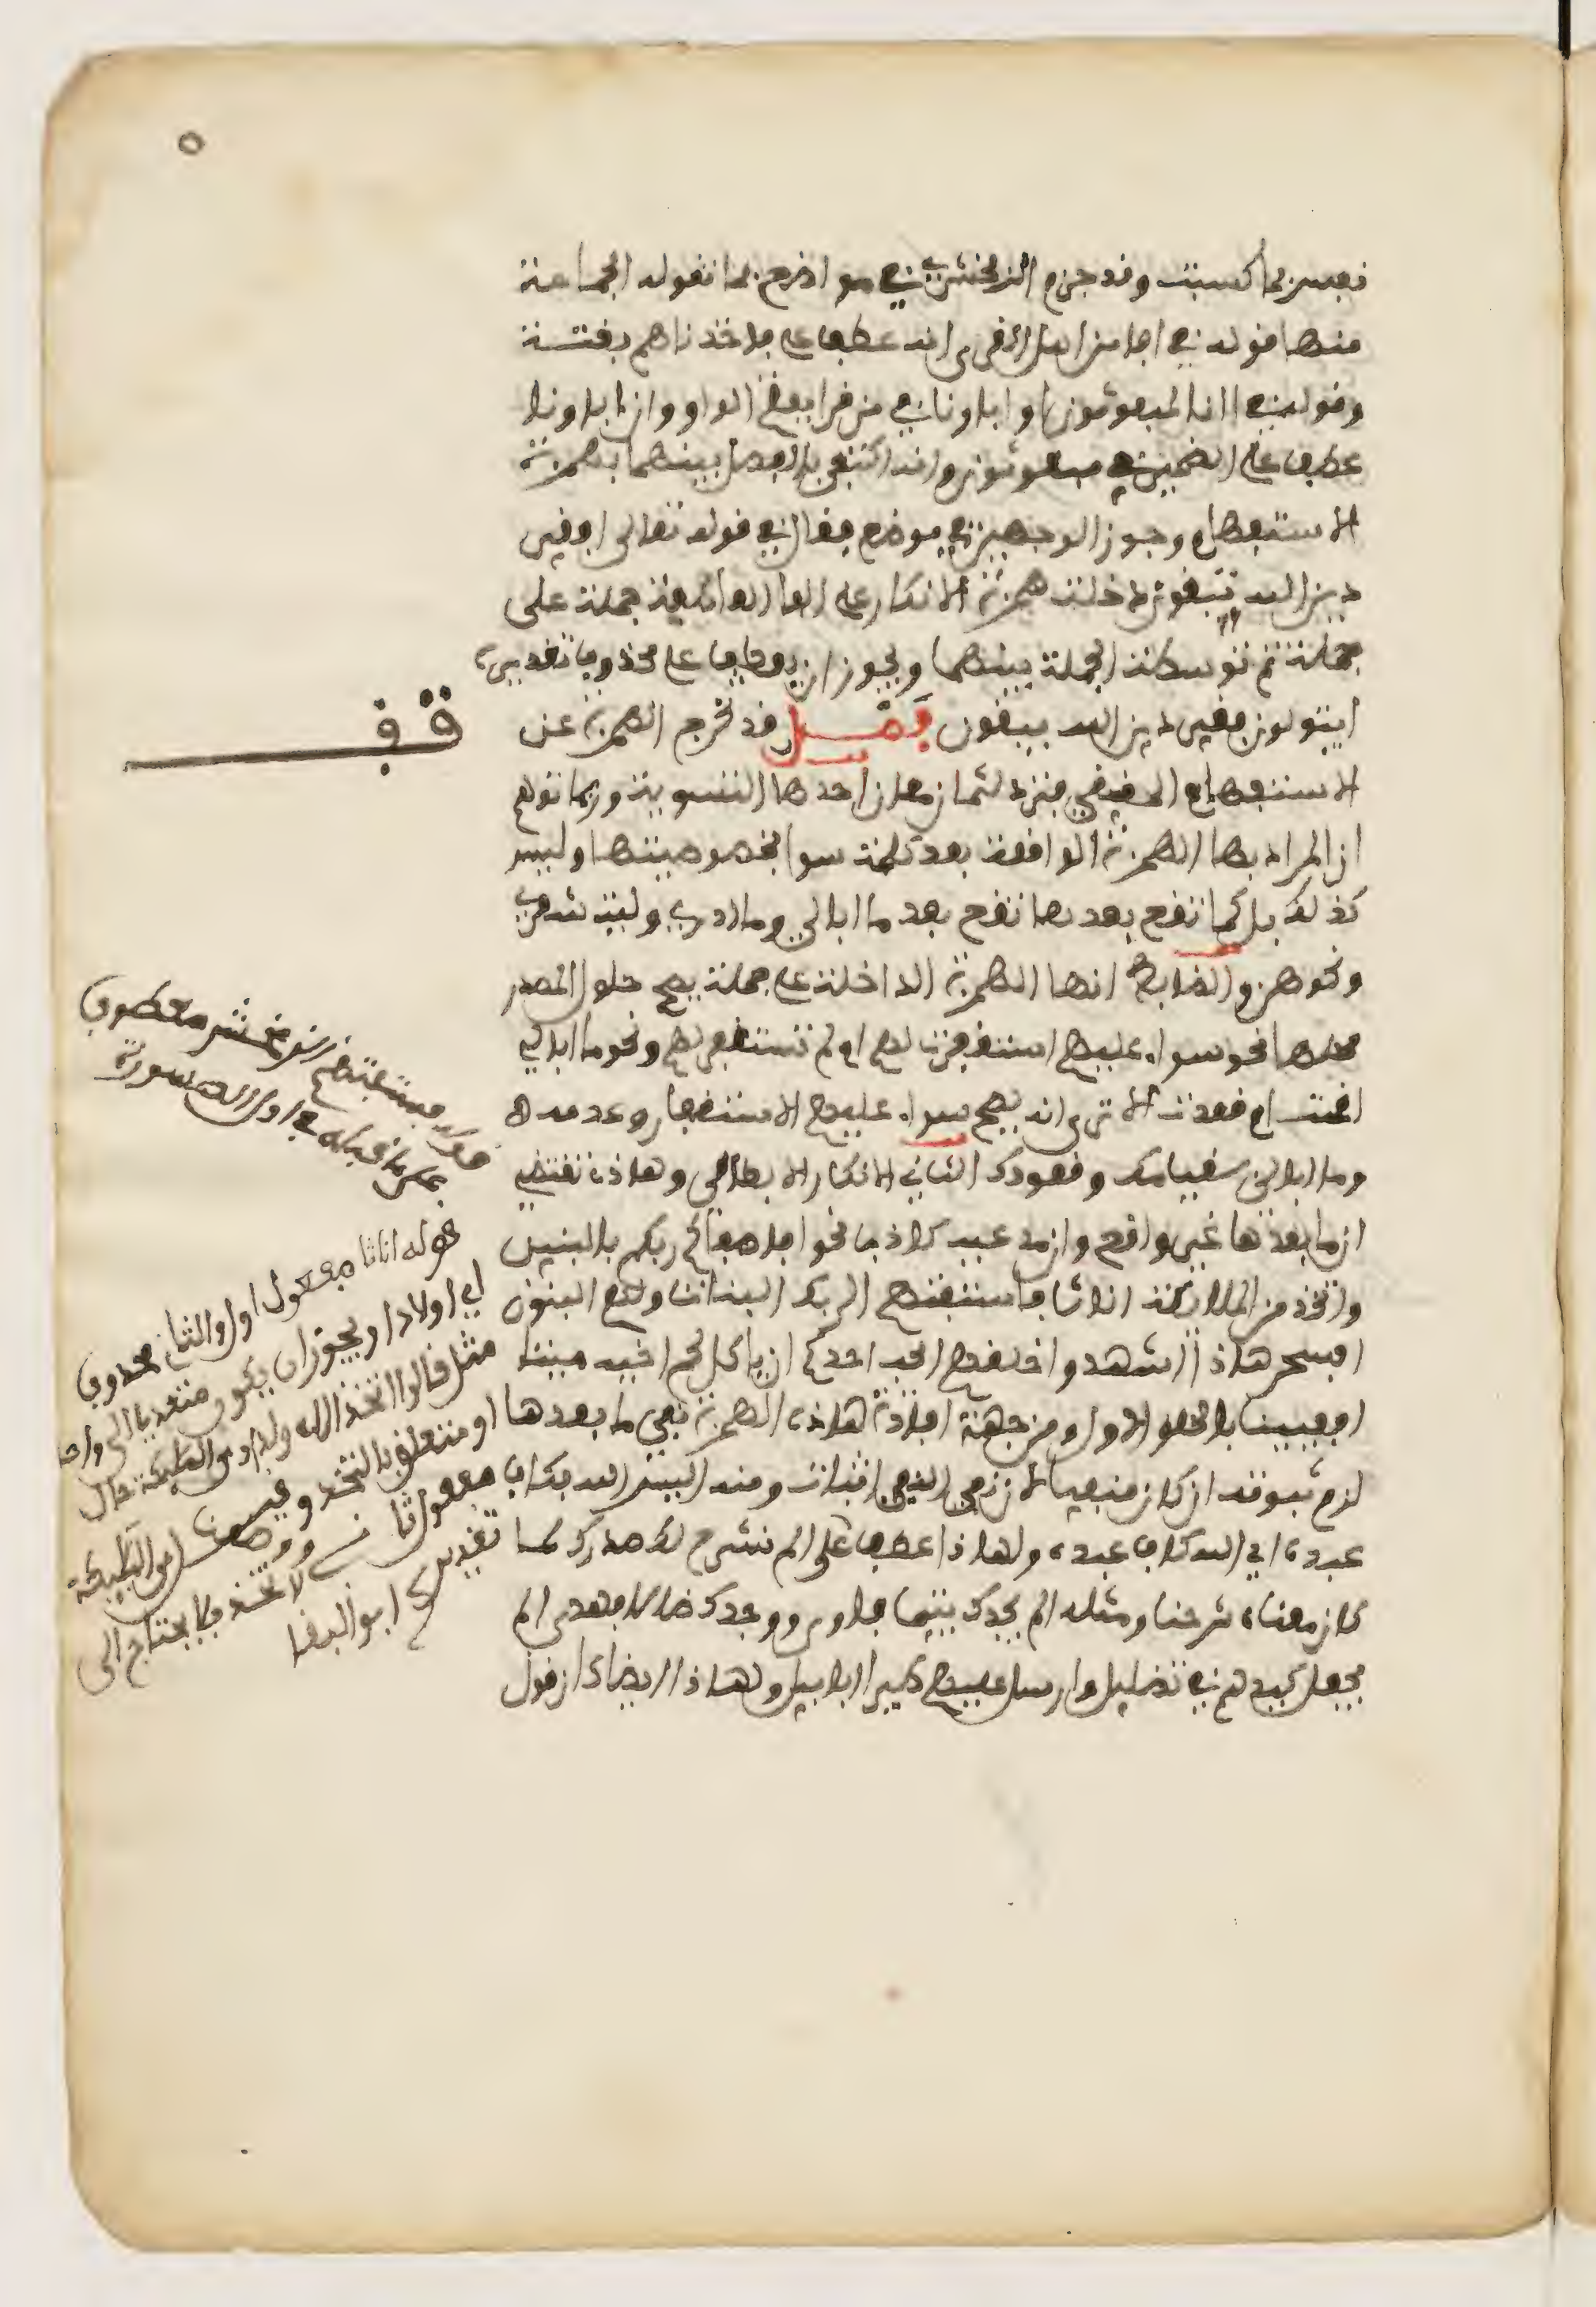 ٥
نفس بما كسبت وقد جزم الزمخشري في مواضع بما تقوله الجماعة
منها قوله في افامن اهل القرى انه عطف على فاخذناهم بغتة
وقوله في اانا لمبعوثون او اباونا في من قرا بفتح الواو وان اباونا
عطف على الضمير في مبعوثون وانه اكتفى بالفصل بينهما بهمزة
الاستفهام وجوز الوجهين في موضع فقال في قوله تعالى افغير
دين الله تبغون دخلت همزة الانكار على الفا العاطفة جملة على
جملة ثم توسطت الجملة بينهما ويجوز ان يعطف على محذوف تقديره
ايتولون فغير دين الله يبغون فصل قد تخرج الهمزة عن
الاستفهام الحقيقي فترد لثمان معان احدها التسوية وربما توهم
ان المراد بها الهمزة الواقعة بعد كلمة سوا بخصوصيتها وليس
كذلك بل كما تقع بعدها تقع بعد ما ابالي وما ادري وليت شعري
ونحوهن والضابط انها الهمزة الداخلة على جملة يصح حلول المصدر
محلها نحو سواء عليهم استغفرت لهم ام لم تستغفر لهم ونحو ما ابالي
اقمت ام قعدت الا ترى انه يصح سواء عليهم الاستغفار وعدمه
وما ابالي بقيامك وقعودك الثاني الانكار الابطالي وهاذه تقتضي
ان ما بعدها غير واقع وان مدعيه كاذب نحو افاصفاكم ربكم بالبنين
واتخذ من الملائكة اناثا فاستفتهم الربك البنات ولهم البنون
افسحر هاذا اشهدوا خلقهم ايحب احدكم ان ياكل لحم اخيه ميتا
افعيينا بالخلق الاول ومن جهة افادة هاذه الهمزة نفي ما بعدها
لزم ثبوته ان كان منفيا لان نفي النفي اثبات ومنه اليس الله بكاف
عبده اي الله كاف عبده ولهاذا عطف على الم نشرح لك صدرك لما
كان معناه شرحنا ومثله الم يجدك يتيما فاوى ووجدك ضالا فهدى الم
يجعل كيدهم في تضليل وارسل عليهم طيرا ابابيل ولهاذا ايضا كان قول
قف
قوله فاستفتهم معطوف
على ما قبله في اول السورة
قوله اناثا مفعول اول والثاني محذوف
اي اولادا ويجوز ان يكون متعديا الى واحد
مثل قالوا اتخذ الله ولدا ومن الملائكة حال
او متعلق باتخذ
مفعول ثان لاتخذ فلا يحتاج الى
تقدير ابو البقا